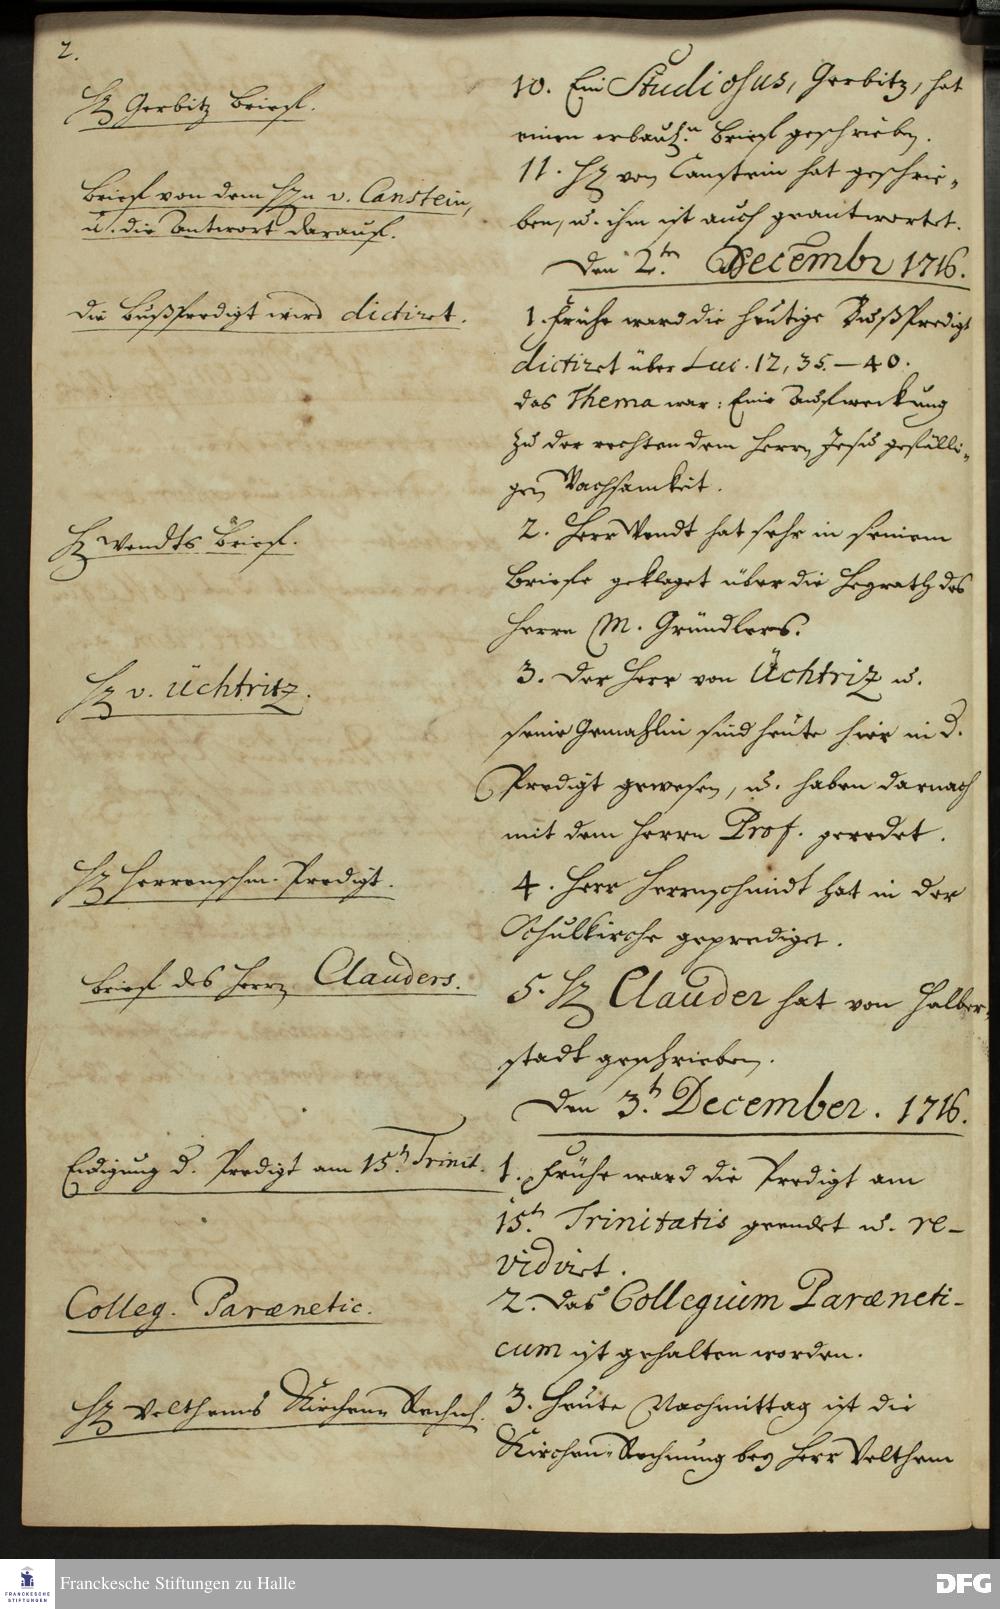 2.
H. Gerbitz Brieff.
Brieff von dem Hn v. Canstein,
u. die Antwort darauf.
die Bußpredigt wird dictiret.
H. Wendts Brieff.
H. v. Üchtritz.
H. Herrenschm. Predigt.
Brieff des Herrn Clauders.
Endigung d. Predigt am 15t. Trinit.
Colleg. Parænetic.
H. Veltheims Kirchen-Rechn.
10. Ein Studiosus, Gerbitz, hat
einen erbaul.n Brieff geschrieben.
11. H. von Canstein hat geschrie-
ben, u. ihm ist auch geantwortet.
Den 2ten. Decembr 1716.
1. Frühe ward die heutige Bußpredigt
dictiret über Luc. 12, 35.–40.
das Thema war: Eine Aufweckung
zu der rechten dem Herrn Jesu gefälli-
gen Wachsamkeit.
2. Herr Wendt hat sehr in seinem
Briefe geklaget über die Heyrath des
Herrn M. Gründlers.
3. Der Herr von Üchtriz u.
seine Gemahlin sind heute hier in d.
Predigt gewesen, u. haben darnach
mit dem Herrn Prof. geredet.
4. Herr Herrnschmidt hat in der
Schulkirche geprediget.
5. H. Clauder hat von Halber-
stadt geschrieben.
Den 3t. December. 1716.
1. Frühe ward die Predigt am
15t. Trinitatis geendet u. re-
vidiret.
2. Das Collegium Paræneti-
cum ist gehalten worden.
3. Heute Nachmittag ist die
Kirchen-Rechnung bey Herr Veltheim
Franckesche Stiftungen zu Halle
FRANCKESCHE
STIFTUNGEN
DFG